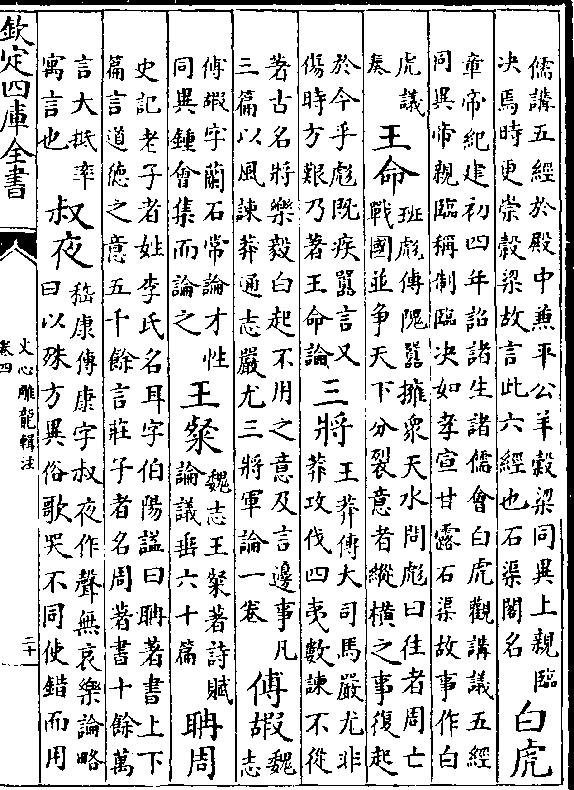 儒講五經於殿中兼平公羊榖梁同異上親臨
決焉時更崇榖梁故言此六經也石渠閣名
白虎
章帝紀建初四年詔諸生諸儒會白虎觀講議五經
同異帝親臨稱制臨決如孝宣甘露石渠故事作白
虎議
奏
王命
班彪傳隗囂擁衆天水問彪曰往者周亡
戰國並争天下分裂意者縱横之事復起
於今乎彪既疾囂言又
傷時方艱乃著王命論
三將
王莽傳大司馬嚴尤非
莽攻伐四夷數諫不從
著古名將樂毅白起不用之意及言邊事凡
三篇以風諫莽通志嚴尤三將軍論一卷
傅嘏
魏
志
傅嘏字蘭石常論才性
同異鍾會集而論之
王粲
魏志王粲著詩賦
論議垂六十篇
聃周
史記老子者姓李氏名耳字伯陽諡曰聃著書上下
篇言道徳之意五千餘言莊子者名周著書十餘萬
言大抵率
寓言也
叔夜
嵇康傳康字叔夜作聲無哀樂論略
曰以殊方異俗歌哭不同使錯而用
欽定四庫全書
文心雕龍輯注
卷四
二十